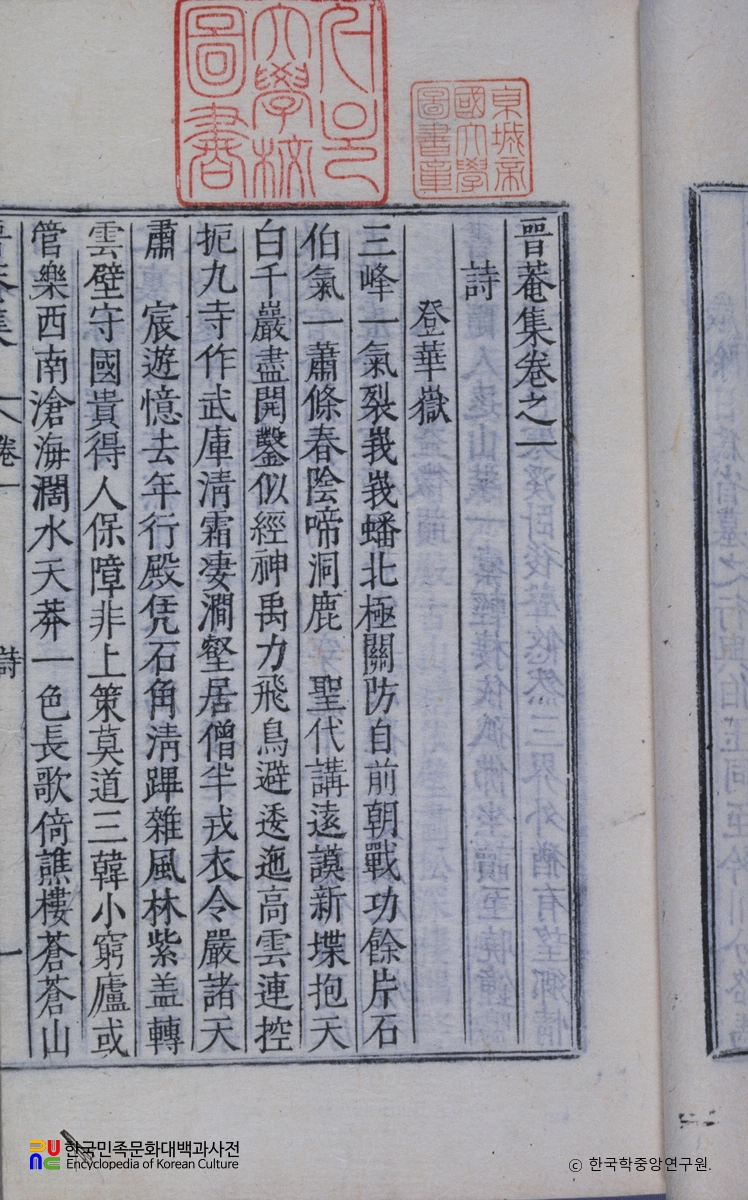 晉菴集卷之一
詩
登華嶽
三峰一氣裂峩峩蟠北極關防自前朝戰功餘片石
伯氣一蕭條春陰啼洞鹿 聖代講遠謨新堞抱天
白千巖盡開鑿似經神禹力飛鳥避逶迤高雲連控
扼九寺作武庫清霜凄澗壑居僧半戎衣令嚴諸天
肅 宸遊憶去年行殿凭石角淸蹕雜風林紫盖轉
雲壁守國貴得人保障非上策莫道三韓小窮廬或
管樂西南滄海濶水天莽一色長歌倚譙樓蒼蒼山
晉菴集 卷一 詩 一
京城帝國大學圖書章
大學校圖書
한국민족문화대백과사전
Encyclopedia of Korean Culture
ⓒ 한국학중앙연구원.